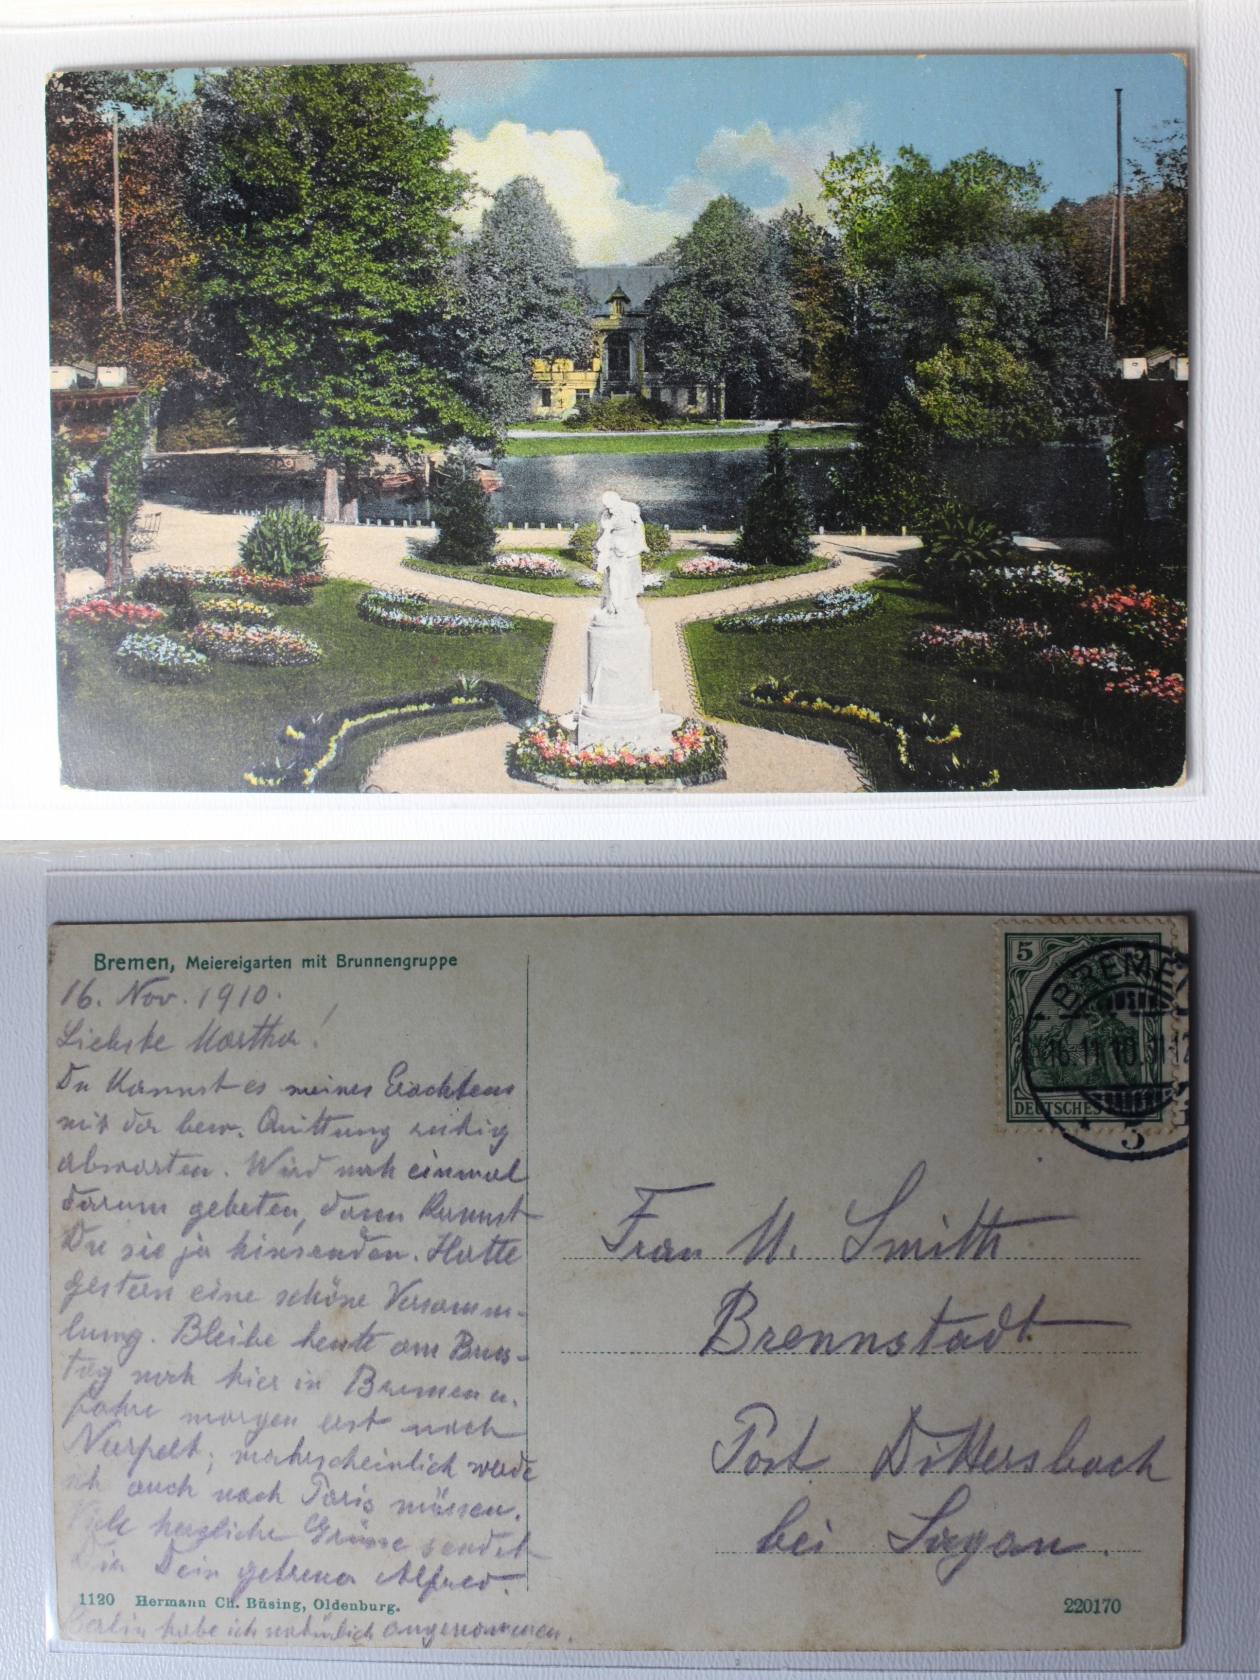 Bremen, Meiereigarten mit Brunnengruppe
16. Nov. 1910.
Liebste Martha!
Du kannst es meines Erachtens
mit der bew. Quittung ruhig
abwarten. Wird noch einmal
darum gebeten, dann kannst
Du sie ja hinsenden. Hatte
gestern eine schöne Versamm-
lung. Bleibe heute am Buss-
tag noch hier in Bremen u.
fahre morgen erst nach
wahrscheinlich werde
ich auch nach Paris müssen.
Viele herzliche Grüsse sendet
Dir Dein getreuer Alfred.
1120 Hermann Ch. Büsing, Oldenburg.
Berlin habe ich natürlich angenommen.
5
DEUTSCHES
BREMEN
16.11.10.11-12
5
Frau M. Smith
Brennstadt
Post Dittersbach
bei Sagan.
220170